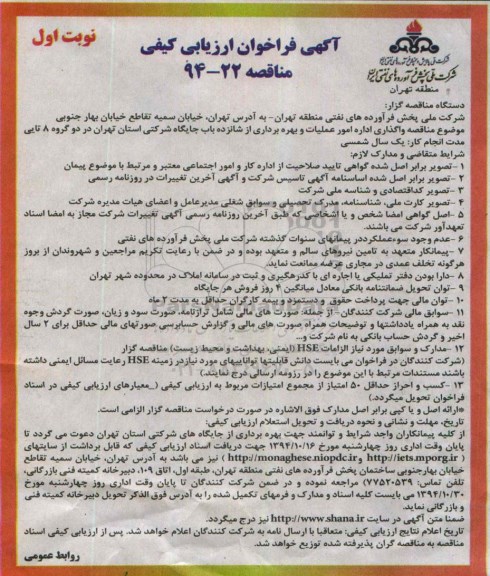 نوبت اول
آگهی فراخوان ارزیابی کیفی
مناقصه ۲۲-۹۴
شرکت ملی پالایش و پخش فرآورده های نفتی ایران
شرکت ملی پخش فرآورده های نفتی ایران
منطقه تهران
دستگاه مناقصه گزار:
شرکت ملی پخش فرآورده های نفتی منطقه تهران- به آدرس تهران، خیابان سمیه تقاطع خیابان بهار جنوبی
موضوع مناقصه واگذاری اداره امور عملیات و بهره برداری از شانزده باب جایگاه شرکتی استان تهران در دو گروه ۸ تایی
مدت انجام کار: یک سال شمسی
شرایط متقاضی و مدارک لازم:
۱-تصویر برابر اصل شده گواهی تایید صلاحیت از اداره کار و امور اجتماعی معتبر و مرتبط با موضوع پیمان
۲-تصویر برابر اصل شده اساسنامه آگهی تاسیس شرکت و آگهی آخرین تغییرات در روزنامه رسمی
۳-تصویر کداقتصادی و شناسه ملی شرکت
۴-تصویر کارت ملی، شناسنامه، مدرک تحصیلی و سوابق شغلی مدیرعامل و اعضای هیات مدیره شرکت
۵-اصل گواهی امضا شخص و یا اشخاصی که طبق آخرین روزنامه رسمی آگهی تغییرات شرکت مجاز به امضا اسناد
تعهدآور شرکت می باشند.
۶-عدم وجود سوءعملکرددر پیمانهای سنوات گذشته شرکت ملی پخش فرآورده های نفتی
۷-پیمانکار متعهد به تامین نیروهای سالم و متعهد بوده و در ضمن با رعایت تکریم مراجعین و شهروندان از بروز
هرگونه تخلف عمدی در مجاری عرضه ممانعت نماید.
۸-دارا بودن دفتر تملیکی یا اجاره ای با کدرهگیری و ثبت در سامانه املاک در محدوده شهر تهران
۹-توان تحویل ضمانتنامه بانکی معادل میانگین ۴ روز فروش هر جایگاه
۱۰-توان مالی جهت پرداخت حقوق و دستمزد و بیمه کارگران حداقل به مدت ۲ ماه
۱۱-سوابق مالی شرکت کنندگان- از جمله: صورت های مالی شامل ترازنامه، صورت سود و زیان، صورت گردش وجوه
نقد به همراه یادداشتها و توضیحات همراه صورت های مالی و گزارش حسابرسی صورتهای مالی حداقل برای ۲ سال
اخیر و گردش حساب بانکی به نام شرکت و...
۱۲-مدارک و سوابق مورد نیاز الزامات HSE (ایمنی، بهداشت و محیط زیست) مناقصه گزار
(شرکت کنندگان در فراخوان می بایست دانش قابلیتها تواناییهای مورد نیازدر زمینه HSE رعایت مسائل ایمنی داشته
باشند مستندات مرتبط با این موضوع را در رزومه ارسالی درج نمایند).
۱۳-کسب و احراز حداقل ۵۰ امتیاز از مجموع امتیازات مربوط به ارزیابی کیفی (_معیارهای ارزیابی کیفی در اسناد
فراخوان تحویل میگردد.)
*ارائه اصل و یا کپی برابر اصل مدارک فوق الاشاره در صورت درخواست مناقصه گزار الزامی است.
تاریخ، مهلت و نشانی و نحوه دریافت و تحویل استعلام ارزیابی کیفی:
از کلیه پیمانکاران واجد شرایط و توانمند جهت بهره برداری از جایگاه های شرکتی استان تهران دعوت می گردد تا
پایان وقت اداری روز چهارشنبه مورخ ۱۳۹۴/۱۰/۱۶ جهت دریافت اسناد ارزیابی کیفی که قابل برداشت از سایتهای
(http://iets.mporg.ir و http://monaghese.niopdc.ir) نیز می باشد به آدرس تهران، خیابان سمیه تقاطع
خیابان بهارجنوبی ساختمان پخش فرآورده های نفتی منطقه تهران، طبقه اول، اتاق ۱۰۹، دبیرخانه کمیته فنی بازرگانی،
تلفن تماس: (۷۷۵۲۰۵۳۹) مراجعه نموده و در ضمن شرکت کنندگان تا پایان وقت اداری روز چهارشنبه مورخ
۱۳۹۴/۱۰/۳۰ می بایست کلیه اسناد و مدارک و فرمهای تکمیل شده را به آدرس فوق الذکر تحویل دبیرخانه کمیته فنی
و بازرگانی نماید.
ضمنا متن آگهی در سایت http://www.shana.ir نیز درج میگردد.
تاریخ اعلام نتایج ارزیابی کیفی: متعاقبا با ارسال نامه به شرکت کنندگان اعلام خواهد شد. پس از ارزیابی کیفی اسناد
مناقصه به مناقصه گران پذیرفته شده توزیع خواهد شد.
روابط عمومی